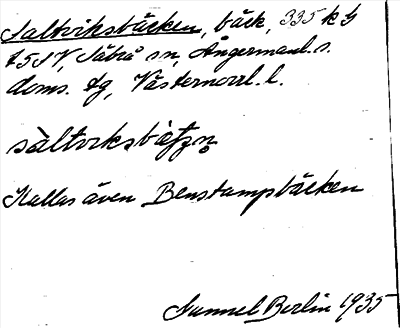 Saltviksbäcken, bäck, 335 kb
t5SV, Säbrå sn, Ångermanl. s.
doms. tg, Västernorrl. l.
sàltviksbä̀ʃʒn̥
Kallas även Benstampbäcken
Sunnel Berlin 1935